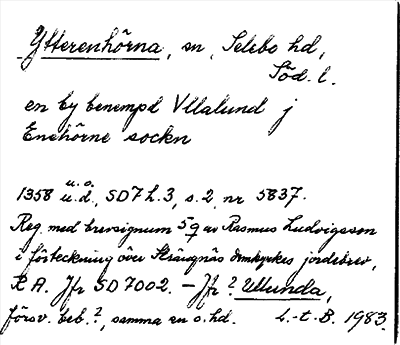 Ytterenhörna, sn, Selebo hd,
Söd. l.
en by benempd Vllalund j
Enehörne sockn
u. o.
1358 u. d., SD 7 h. 3, s. 2, nr 5837.
Reg. med brevsignum 59 av Rasmus Ludvigsson
i förteckning över Strängnäs domkyrkas jordebrev,
RA. Jfr SD 7002. – Jfr ? Ullunda,
försv. beb. ?, samma sn o. hd. L.-t.-B. 1983.